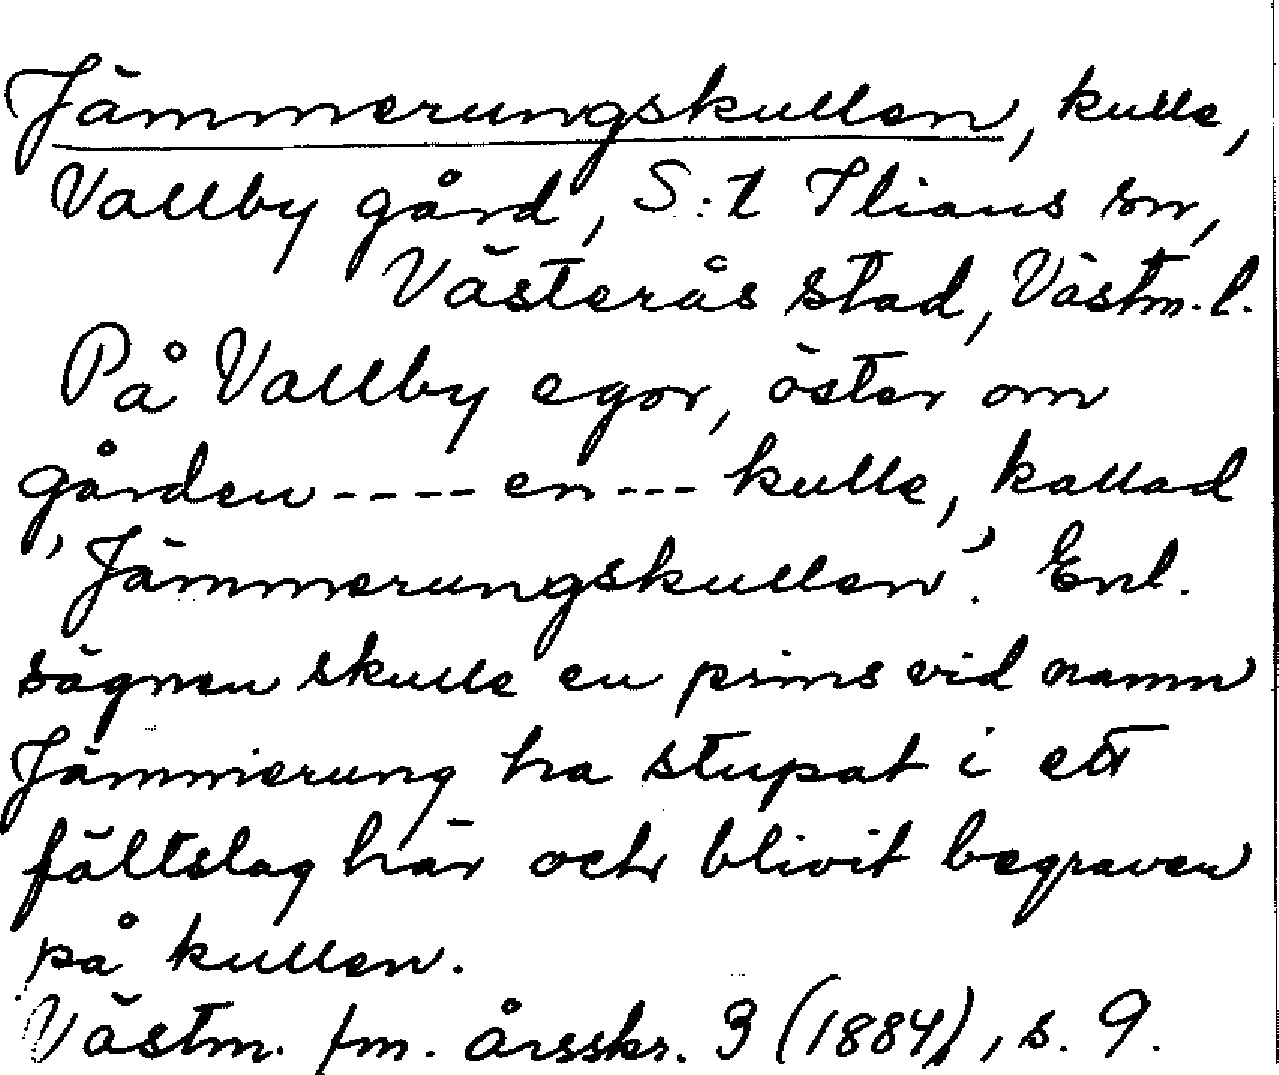 Jämmerungskullen, kulle,
Vallby gård, S:t Ilians sn,
Västerås stad, Västm. l.
På Vallby egor, öster om
gården ---- en --- kulle, kallad
"Jämmerungskullen". Enl.
sägnen skulle en prins vid namn
Jämmerung ha stupat i ett
fältslag här och blivit begraven
på kullen.
Västm. fm. årsskr. 3 (1884), s. 9.